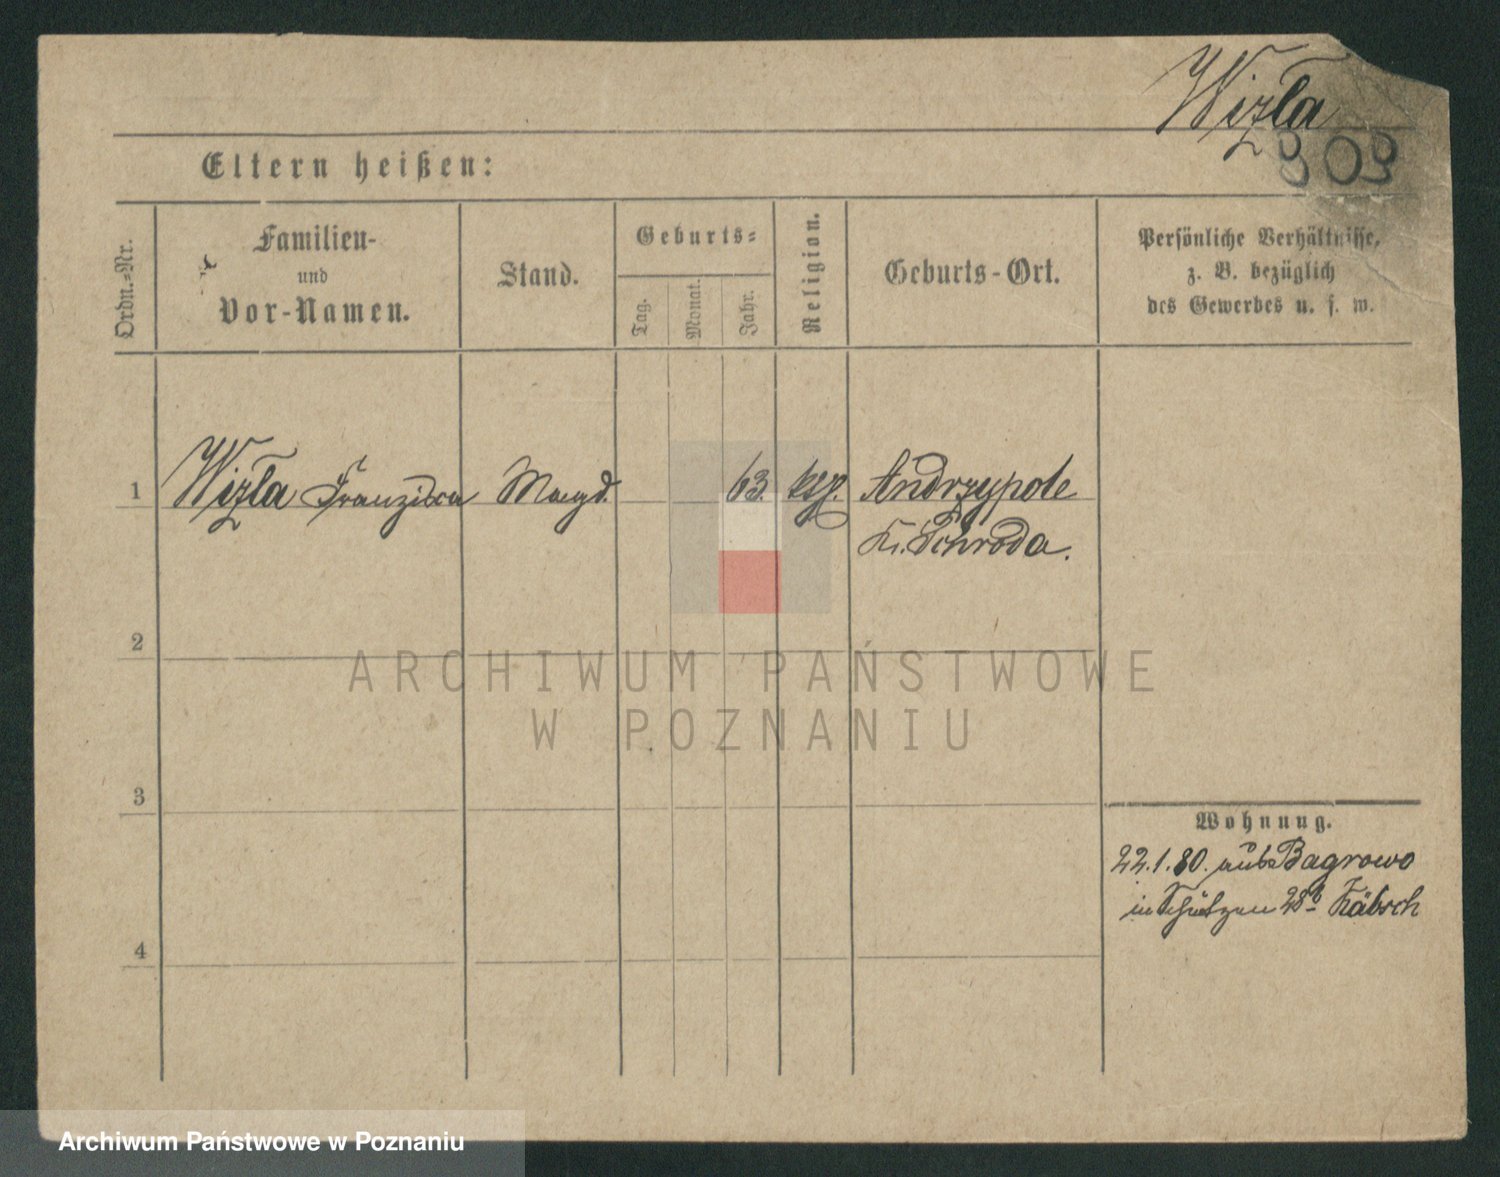 Wizła
909
Eltern heißen:
Ordn.-Nr.
Familien-
und
Vor-Namen.
Stand.
Geburts-
Tag.
Monat.
Jahr.
Religion.
Geburts-Ort.
Persönliche Verhältnisse,
z. B. bezüglich
des Gewerbes u. s. w.
1 Wizła Franzisca Magd. 63. kth. Andrzypole
Kr. Schroda.
2
ARCHIWUM PAŃSTWOWE
W POZNANIU
3
Wohnung.
22.1.80. aus Bagrowo
in Schützen 28b
4
Archiwum Państwowe w Poznaniu